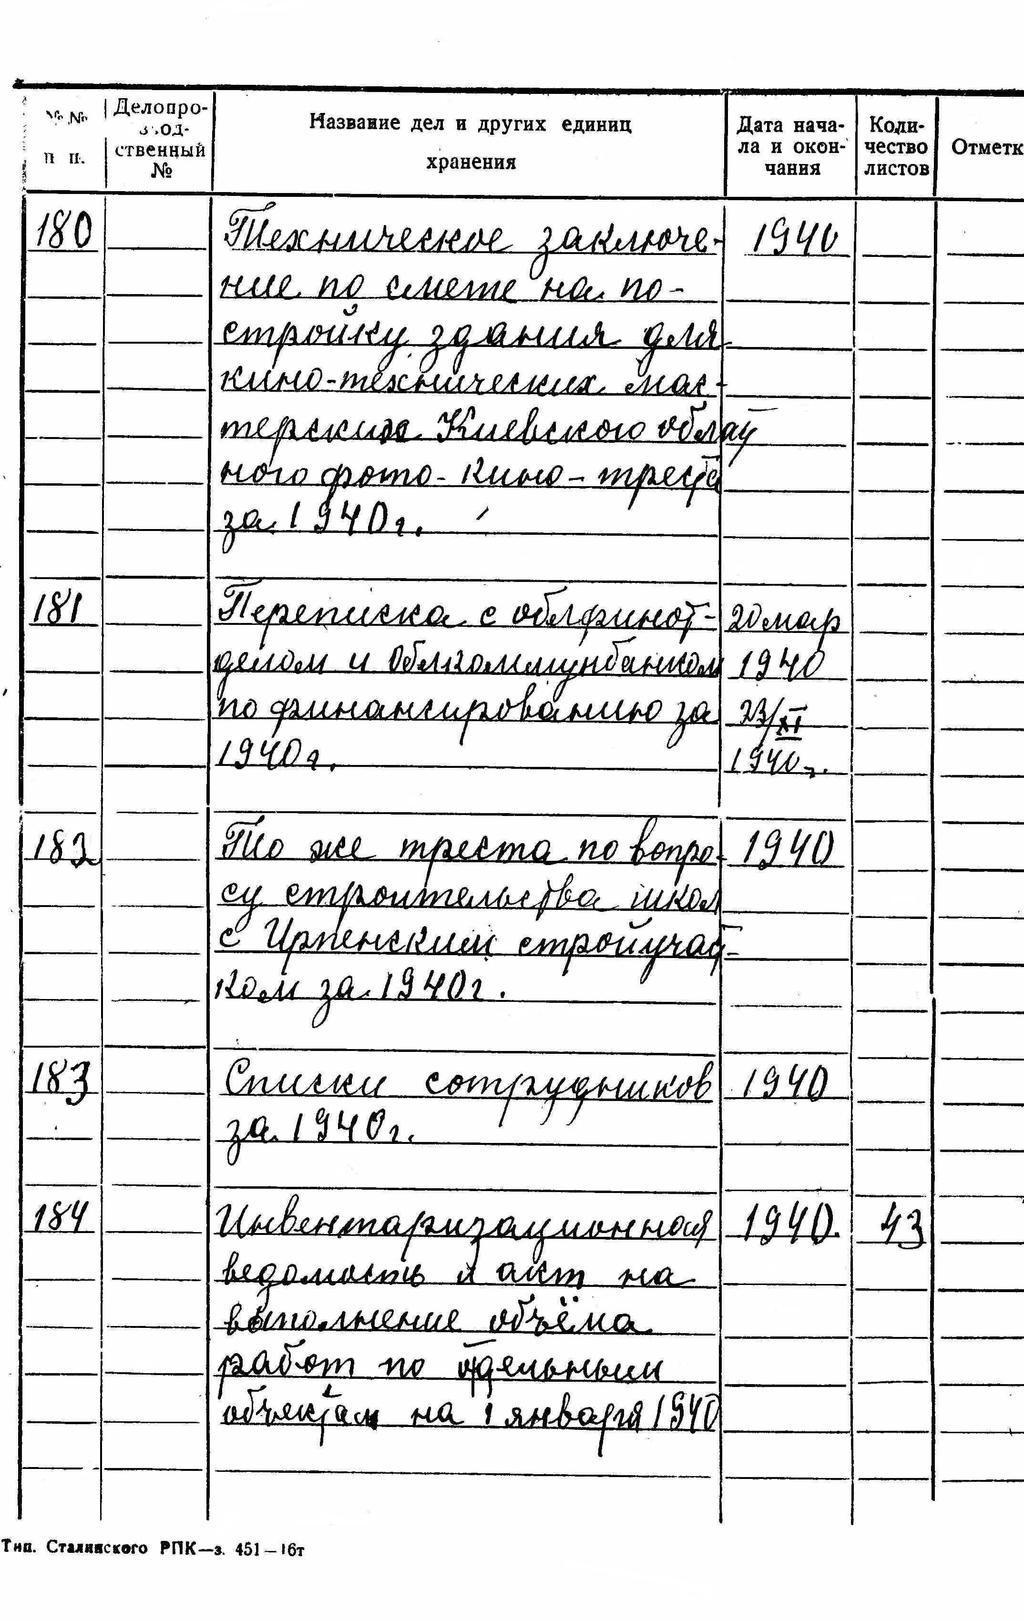 №№ п п.
Делопро-
вод-
ственный
№
Название дел и других единиц
хранения
Дата нача-
ла и окон-
чания
Коли-
чество
листов
Отметк
180 Техническое заключе- 1940
ние по смете на по-
стройку здания для
кино-технических мас-
терских Киевского област
ного фото-кино-треста
за 1940г.
181 Переписка с облфинот- 20 мар
делом и Облкоммунбанком 1940
по финансированию за 23/XI
1940г. 1940г.
182 То же треста по вопро- 1940
су строительства школ
с Ирпенским стройучаст-
ком за 1940г.
183 Списки сотрудников 1940
за 1940г.
184 Инвентаризационная 1940. 43
ведомость и акт на
выполнение объёма
работ по отдельным
объектам на 1 января 1940
Тип. Сталинского РПК—з. 451—16т